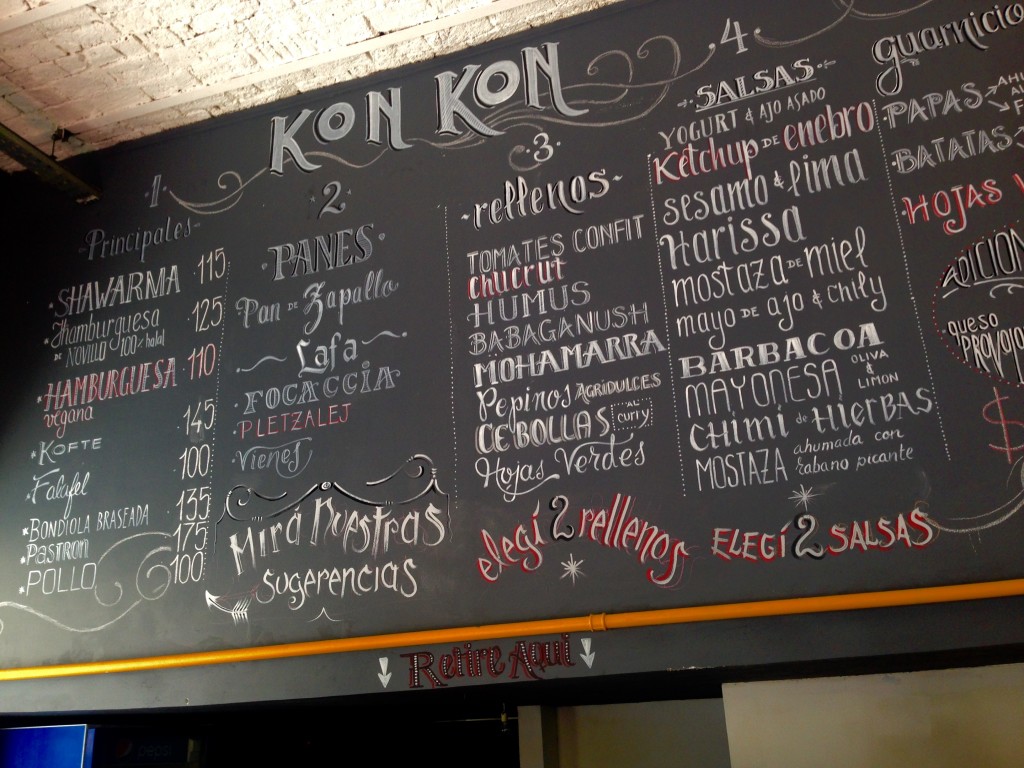 KON KON
1
Principales
SHAWARMA 115
Hamburguesa 125
DE NOVILLO 100% halal
HAMBURGUESA 110
vegana
KOFTE 145
Falafel 100
BONDIOLA BRASEADA 135
Pastron 175
POLLO 100
2
PANES
Pan DE Zapallo
Lafa
FOCACCIA
PLETZALEJ
Vienes
Mirá Nuestras
sugerencias
3
rellenos
TOMATES CONFIT
chucrut
HUMUS
BABAGANUSH
MOHAMARRA
Pepinos AGRIDULCES
CEBOLLAS AL curry
Hojas Verdes
elegí 2 rellenos
4
SALSAS
YOGURT & AJO ASADO
Ketchup DE enebro
sesamo & lima
Harissa
mostaza DE miel
mayo DE ajo & chily
BARBACOA
MAYONESA OLIVA & LIMON
CHIMI de HIERBAS
MOSTAZA ahumada con
rabano picante
ELEGÍ 2 SALSAS
PAPAS
BATATAS
HOJAS
queso
$
Retire Aqui
pepsi